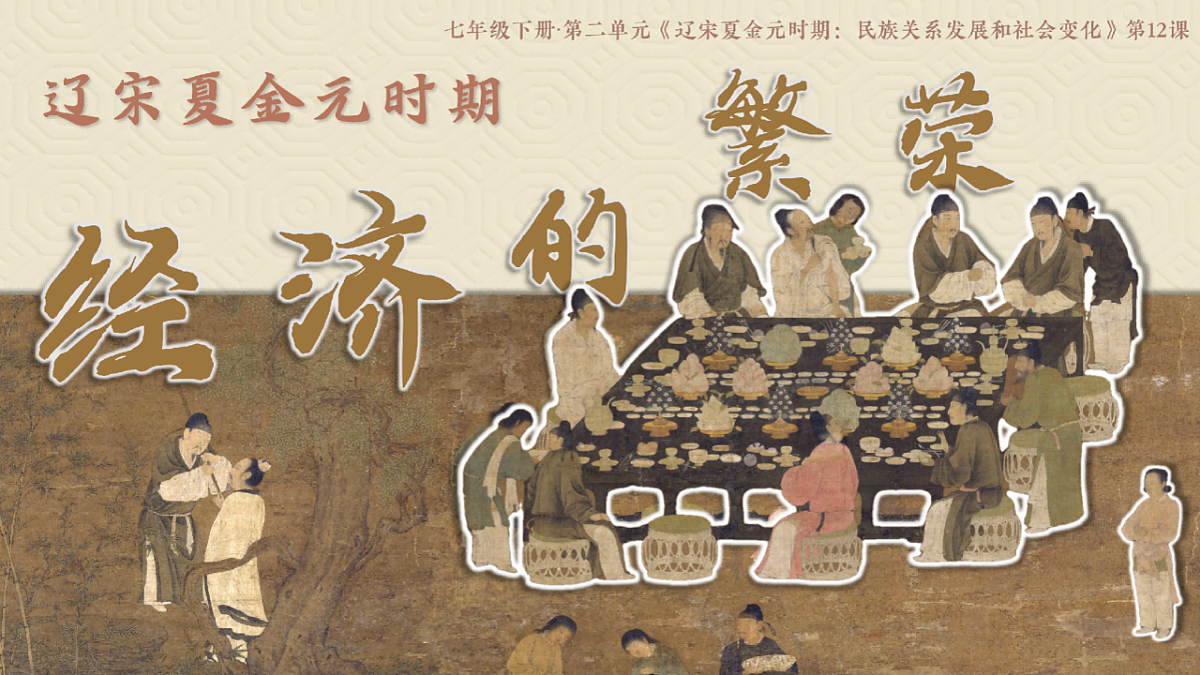 七年级下册·第二单元《辽宋夏金元时期：民族关系发展和社会变化》第12课
辽宋夏金元时期
经济的繁荣